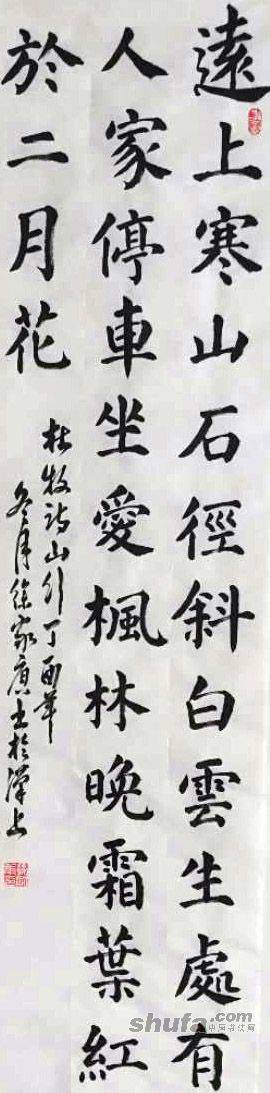 遠上寒山石徑斜白雲生處有
人家停車坐愛楓林晚霜葉紅
於二月花
杜牧詩山行丁酉年
冬月徐家康書於漢上
shufa.com
中国书法网